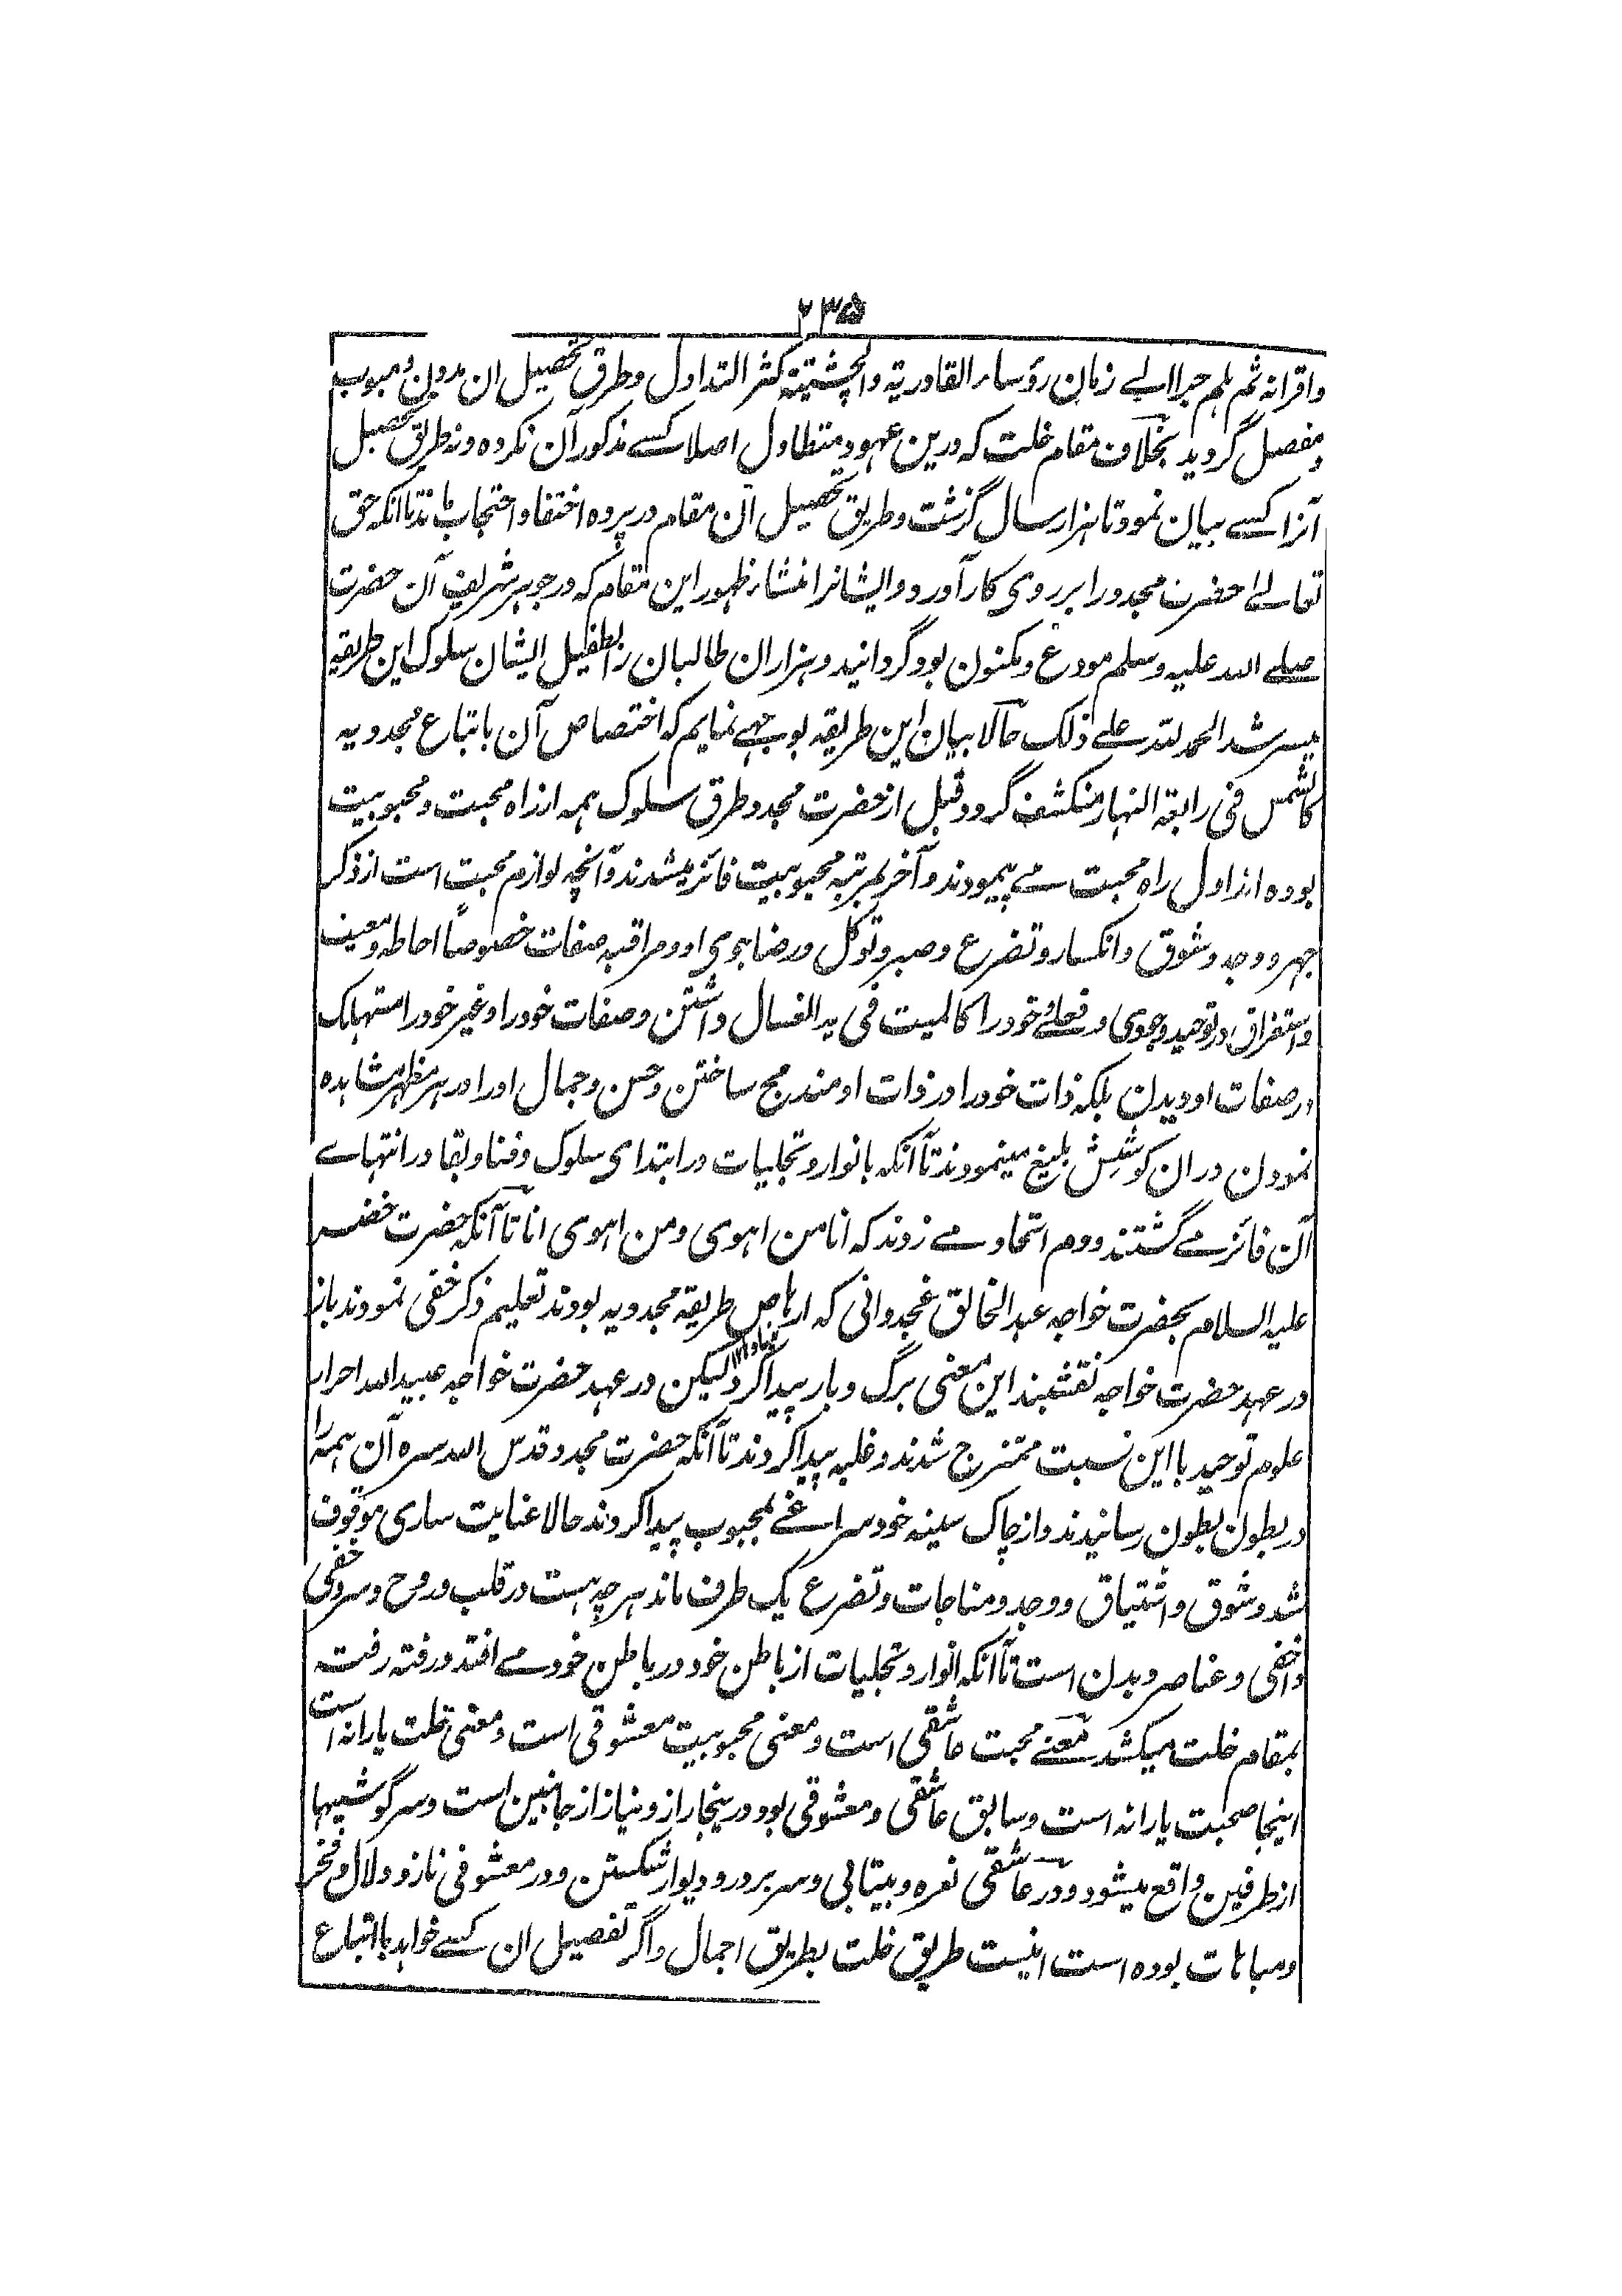 ۲۳۵
واقرانه ثم هلم جرا الے زمان رؤساء القادریة والچشتیة کثر التداول وطرق تحصیل ان مدون ومبوب
ومفصل گردید بخلاف مقام خلت که درین عهود متطاول اصلا کسے مذکور آن نکرده ونه طریق تحصیل
آنرا کسے بیان نمود تا هزار سال گزشت وطریق تحصیل آن مقام در پرده اختفا واحتجاب ماند تا آنکه حق
تعالےٰ حضرت مجدد را بر روی کار آورد وایشانرا منشاء ظهور این مقام که در جوهر شریف آن حضرت
صلے الله علیه وسلم مودع ومکنون بود گردانید وهزاران طالبان را بطفیل ایشان سلوک این طریقه
میسر شد الحمد لله علے ذلک حالا بیان این طریقه بوجهے نمایم که اختصاص آن باتباع مجددیه
کالشمس فی رابعة النهار منکشف گردد قبل از حضرت مجدد طرق سلوک همه از راه محبت ومحبوبیت
بوده از اول راه محبت مے پیمودند وآخر بمرتبه محبوبیت فائز میشدند وآنچه لوازم محبت است از ذکر
جهر ووجد وشوق وانکسار وتضرع وصبر وتوکل ورضا جوی او ومراقبه صفات خصوصاً احاطه ومعیت
واستغراق در توحید وجودی و خود را کالمیت فی ید الغسال داشتن وصفات خود را وغیر خود را مستهلک
در صفات او دیدن بلکه ذات خود را در ذات او مندمج ساختن وحسن وجمال او را در هر مظهر مشاهده
نمودن دران کوشش بلیغ مینمودند تا آنکه بانوار وتجلیات در ابتدای سلوک وفنا وبقا در انتهاے
آن فائز مے گشتند ودم اتحاد مے زدند که انا من اهوی ومن اهوی انا تا آنکه حضرت خضر
علیه السلام بحضرت خواجه عبد الخالق غجدوانی که ارهاص طریقه مجددیه بودند تعلیم ذکر خفی نمودند باز
در عهد حضرت خواجه نقشبند این معنی برگ وبار پیدا کرد لیکن در عهد حضرت خواجه عبید الله احرار
علوم توحید با این نسبت ممتزج شدند وغلبه پیدا کردند تا آنکه حضرت مجدد قدس الله سره آن همه را
در بطون بطون رسانیدند واز چاک سینه خود سراغے بمحبوب پیدا کردند حالا عنایت ساری موقوف
شد وشوق واشتیاق ووجد ومناجات وتضرع یک طرف ماند هر چه هست در قلب وروح وسر وخفی
واخفی وعناصر وبدن است تا آنکه انوار وتجلیات از باطن خود در باطن خود مے افتد ورفته رفته
بمقام خلت میکشد معنے محبت عاشقی است ومعنی محبوبیت معشوقی است ومعنی خلت یارانه است
اینجا صحبت یارانه است وسابق عاشقی ومعشوقی بود درینجا راز ونیاز از جانبین است وسرگوشیها
از طرفین واقع میشود ودر عاشقی نعره وبیتابی وسر بر در ودیوار شکستن ودر معشوقی ناز ودلال وفخر
ومباهات بوده است اینست طریق خلت بطریق اجمال واگر تفصیل ان کسے خواهد باتباع